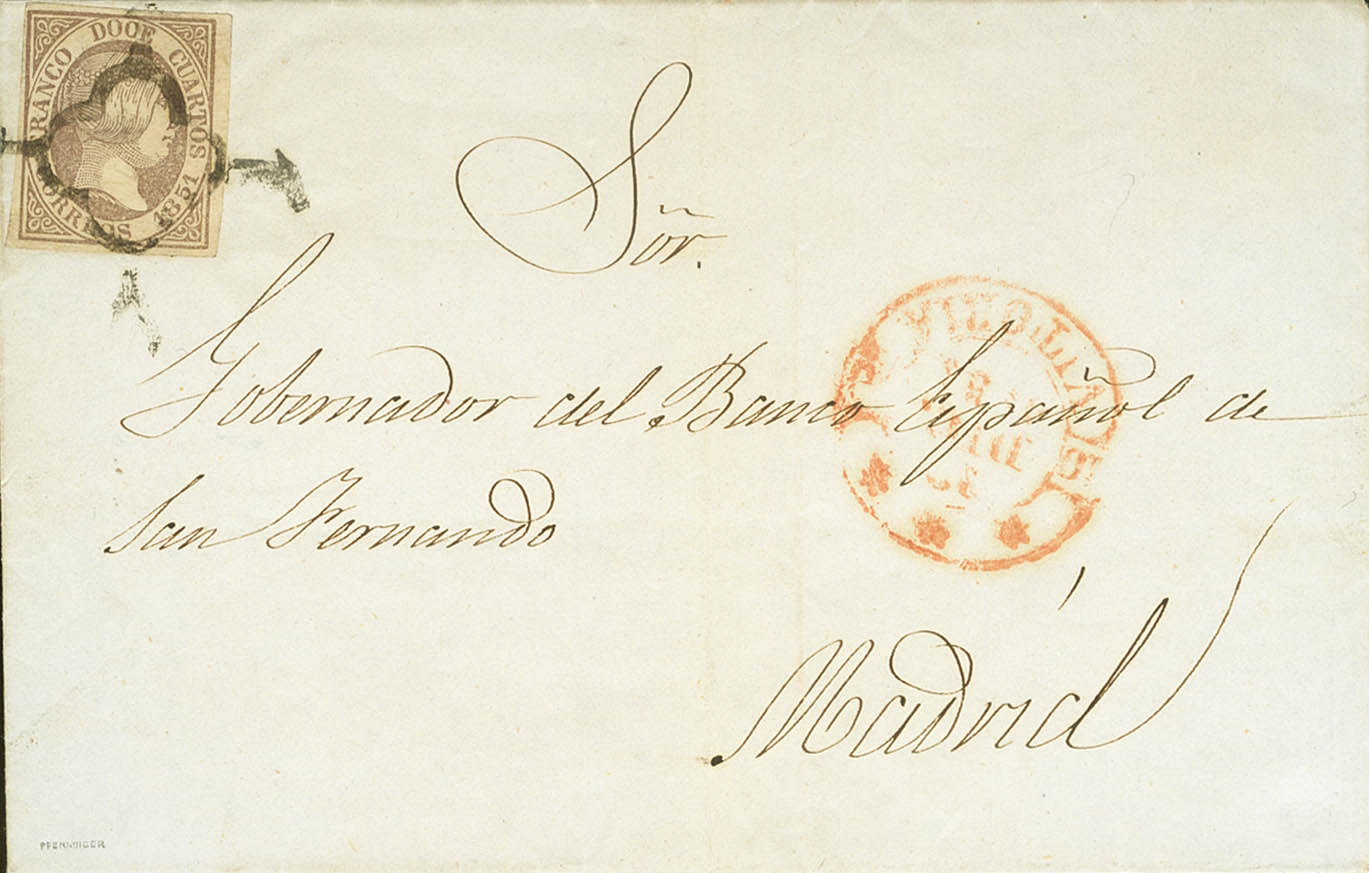 FRANCO DOCE CUARTOS
CORREOS 1851
Sõr.
Gobernador del Banco Español de
San Fernando
Madrid
PFENNINGER